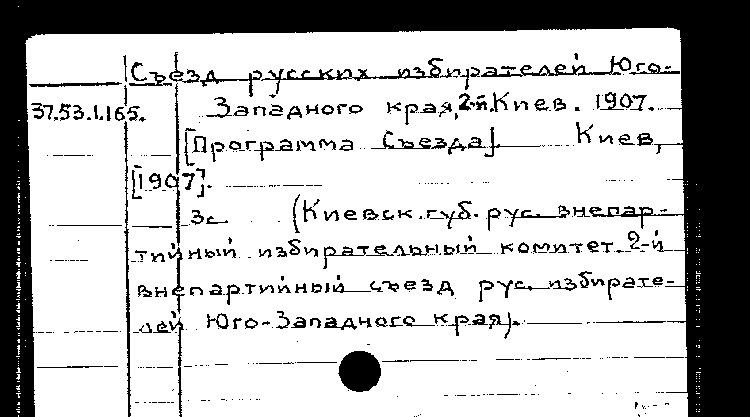 Съезд русских избирателей Юго-
37.53.1.165. Западного края, 2-й. Киев. 1907.
[Программа Съезда]. Киев,
[1907].
3с (Киевск. губ. рус. внепар-
тийный избирательный комитет. 2-й
внепартийный съезд рус. избирате-
лей Юго-Западного края).